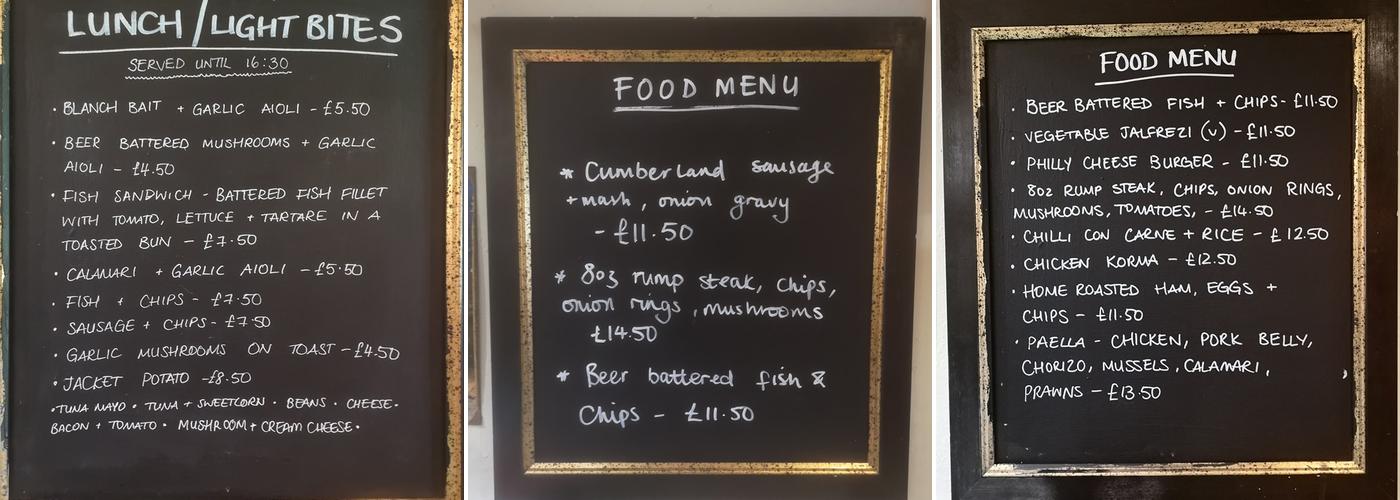 LUNCH/LIGHT BITES
SERVED UNTIL 16:30
• BLANCH BAIT + GARLIC AIOLI - £5.50
• BEER BATTERED MUSHROOMS + GARLIC
AIOLI - £4.50
• FISH SANDWICH - BATTERED FISH FILLET
WITH TOMATO, LETTUCE + TARTARE IN A
TOASTED BUN - £7.50
• CALAMARI + GARLIC AIOLI - £5.50
• FISH + CHIPS - £7.50
• SAUSAGE + CHIPS - £7.50
• GARLIC MUSHROOMS ON TOAST - £4.50
• JACKET POTATO - £8.50
• TUNA MAYO • TUNA + SWEETCORN • BEANS • CHEESE •
BACON + TOMATO • MUSHROOM + CREAM CHEESE •
FOOD MENU
* Cumberland sausage
+ mash, onion gravy
- £11.50
* 8oz rump steak, chips,
onion rings, mushrooms
£14.50
* Beer battered fish &
Chips - £11.50
FOOD MENU
• BEER BATTERED FISH + CHIPS - £11.50
• VEGETABLE JALFREZI (V) - £11.50
• PHILLY CHEESE BURGER - £11.50
• 8oz RUMP STEAK, CHIPS, ONION RINGS,
MUSHROOMS, TOMATOES, - £14.50
• CHILLI CON CARNE + RICE - £12.50
• CHICKEN KORMA - £12.50
• HOME ROASTED HAM, EGGS +
CHIPS - £11.50
• PAELLA - CHICKEN, PORK BELLY,
CHORIZO, MUSSELS, CALAMARI,
PRAWNS - £13.50